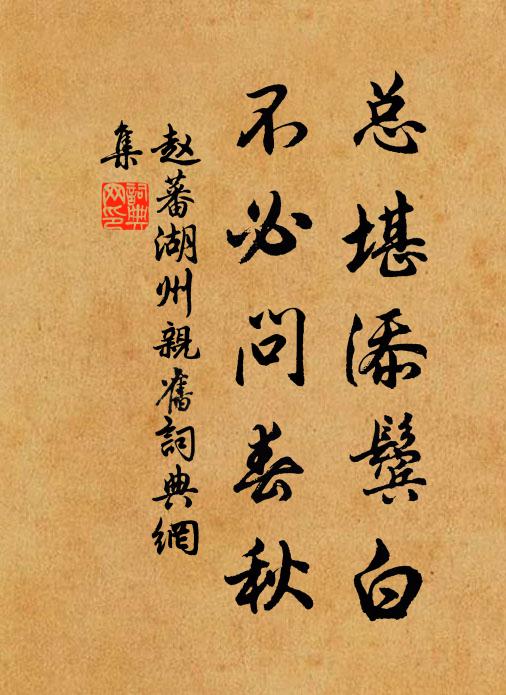 总堪添鬓白
不必问春秋
赵蕃湖州親舊詞典網
集
詞典网印